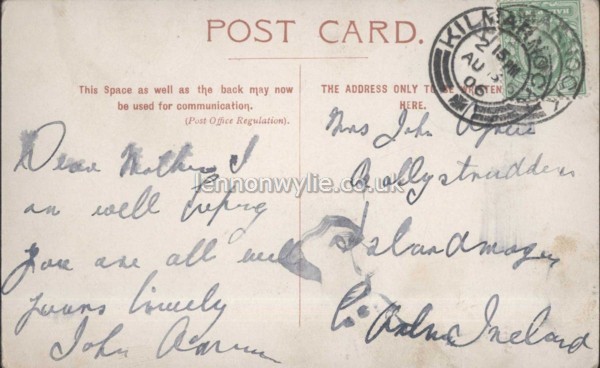 POST CARD.
This Space as well as the back may now
be used for communication.
(Post Office Regulation).
THE ADDRESS ONLY TO BE WRITTEN
HERE.
KILMARNOCK
2 15 PM
AU
06
Dear Mother I
am well hoping
you are all well
yours lovely
John
Mrs John
Ballystrudden
Islandmagee
Co Antrim Ireland
lennonwylie.co.uk